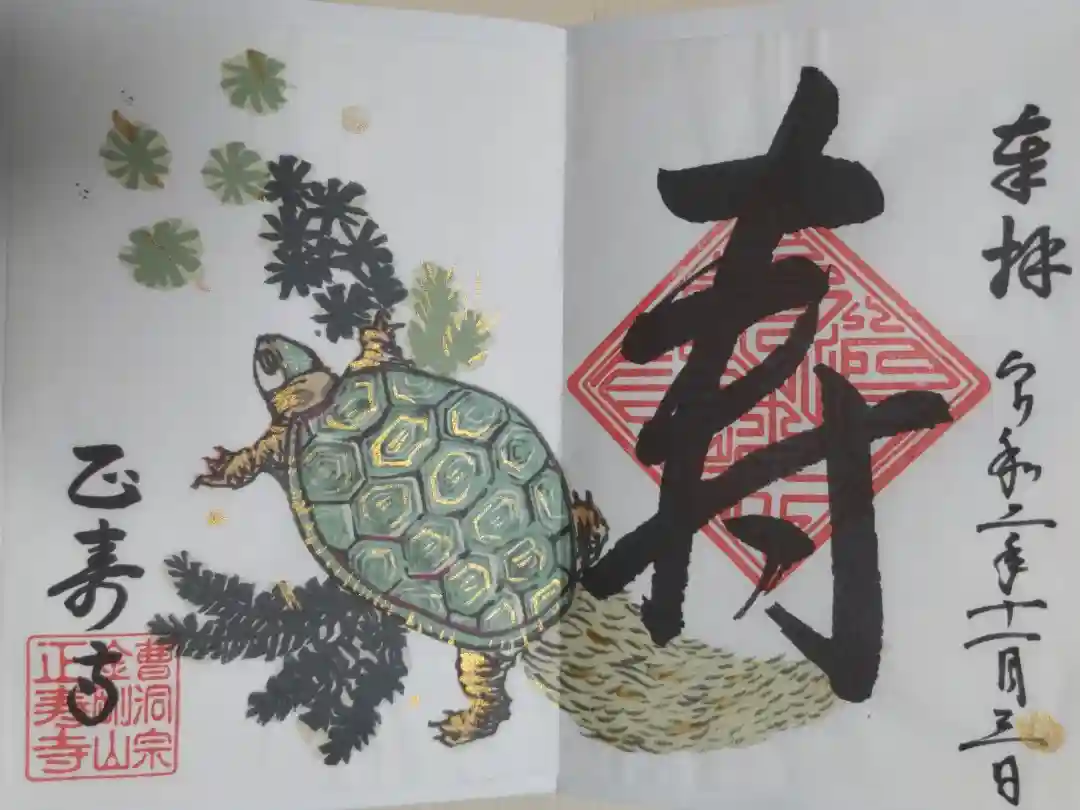 奉拝 令和二年十一月三日
寿
正寿寺
曹洞宗
金剛山
正寿寺